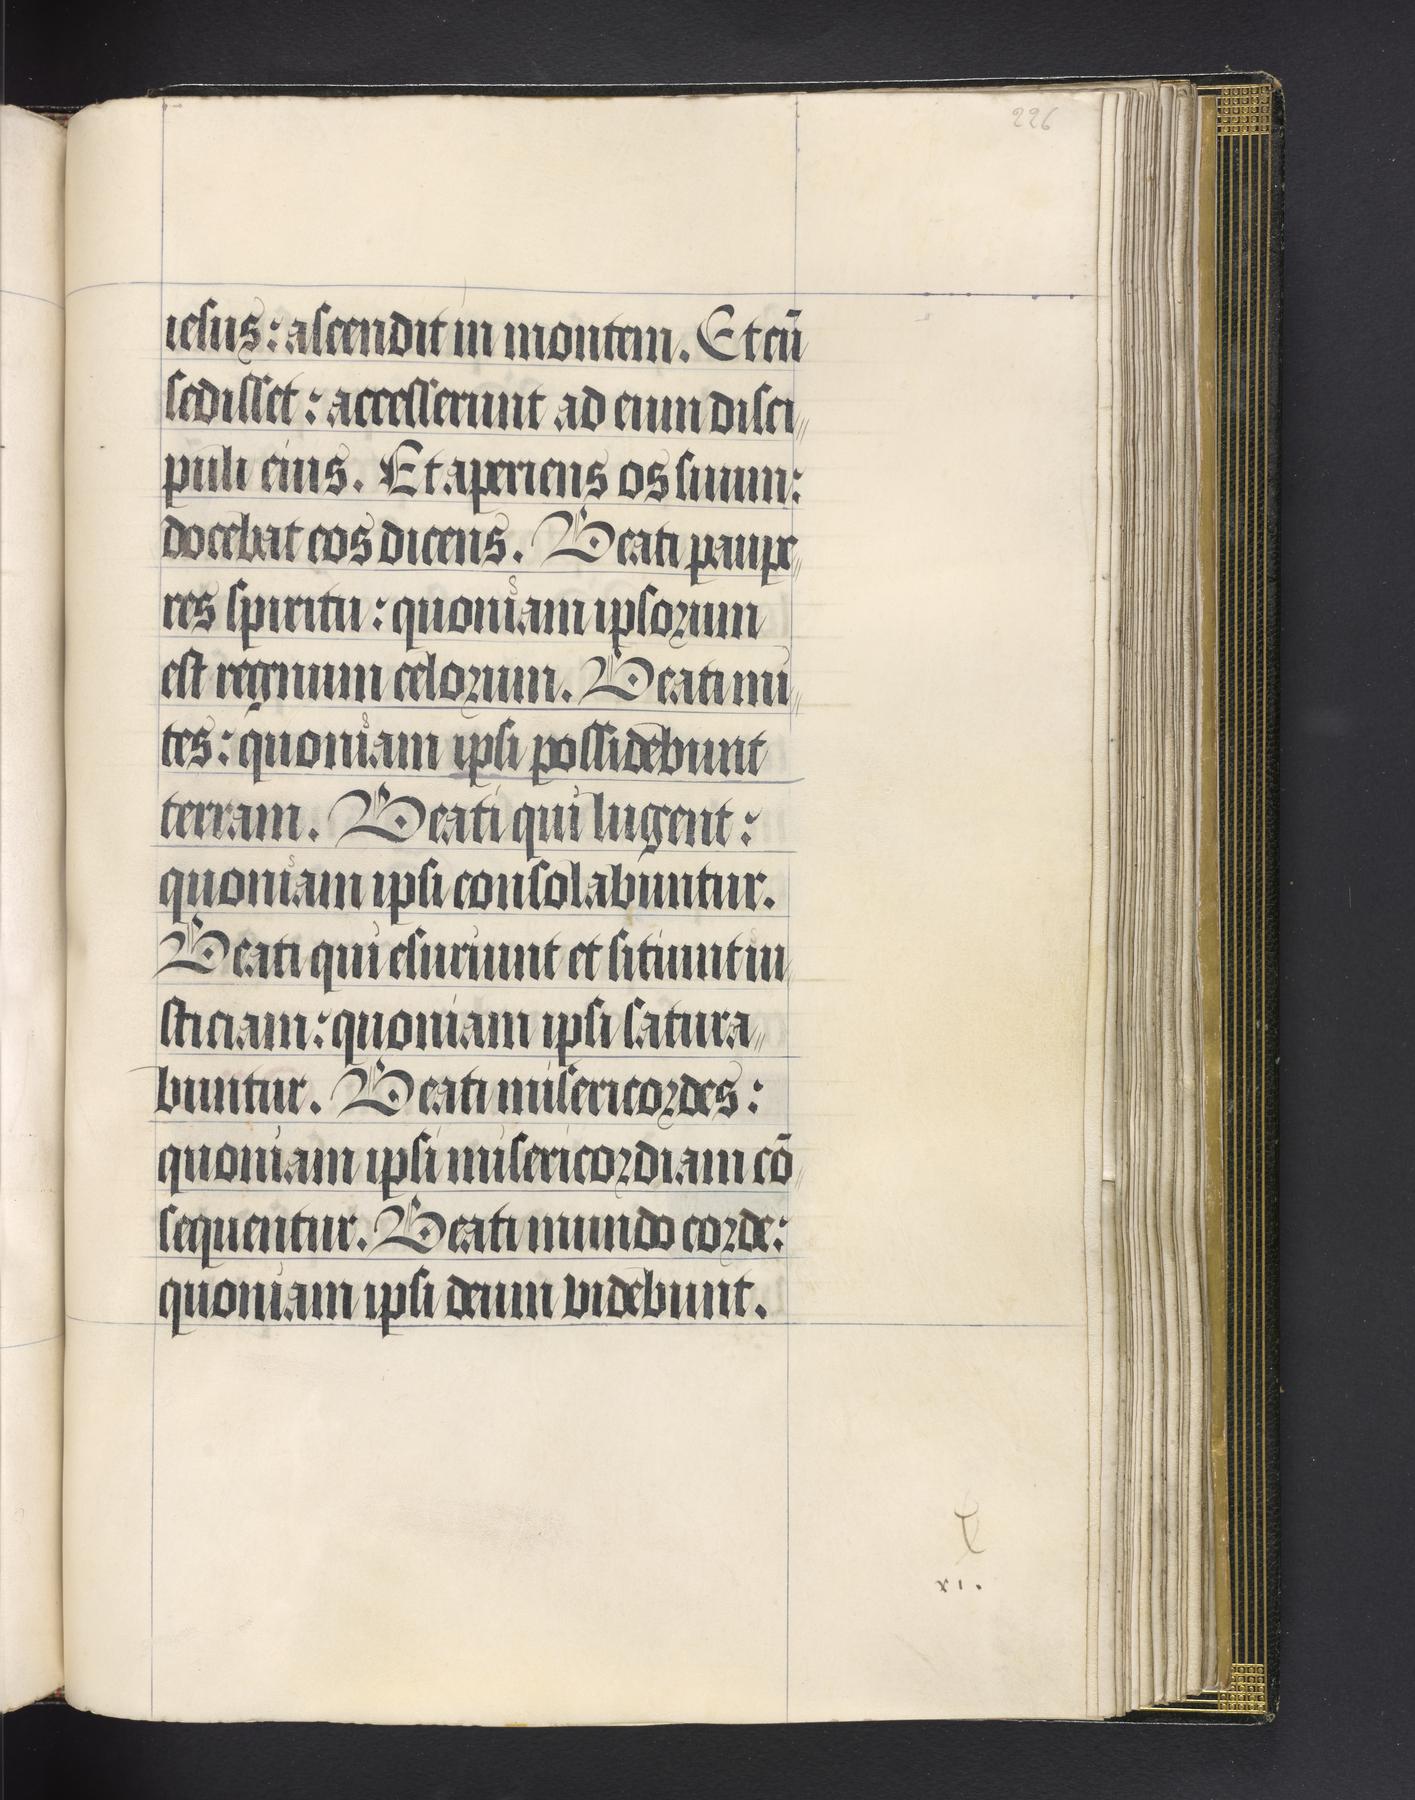 226
iesus: ascendit in montem. Et cū
sedisset: accesserunt ad eum disci//
puli eius. Et aperiens os suum:
docebat eos dicens. Beati paupe//
res spiritu: quoniam ipsorum
est regnum celorum. Beati mi//
tes: quoniam ipsi possidebunt
terram. Beati qui lugent:
quoniam ipsi consolabuntur.
Beati qui esuriunt et sitiunt iu//
sticiam: quoniam ipsi satura//
buntur. Beati misericordes:
quoniam ipsi misericordiam cō//
sequentur. Beati mundo corde:
quoniam ipsi deum videbunt.
xi.